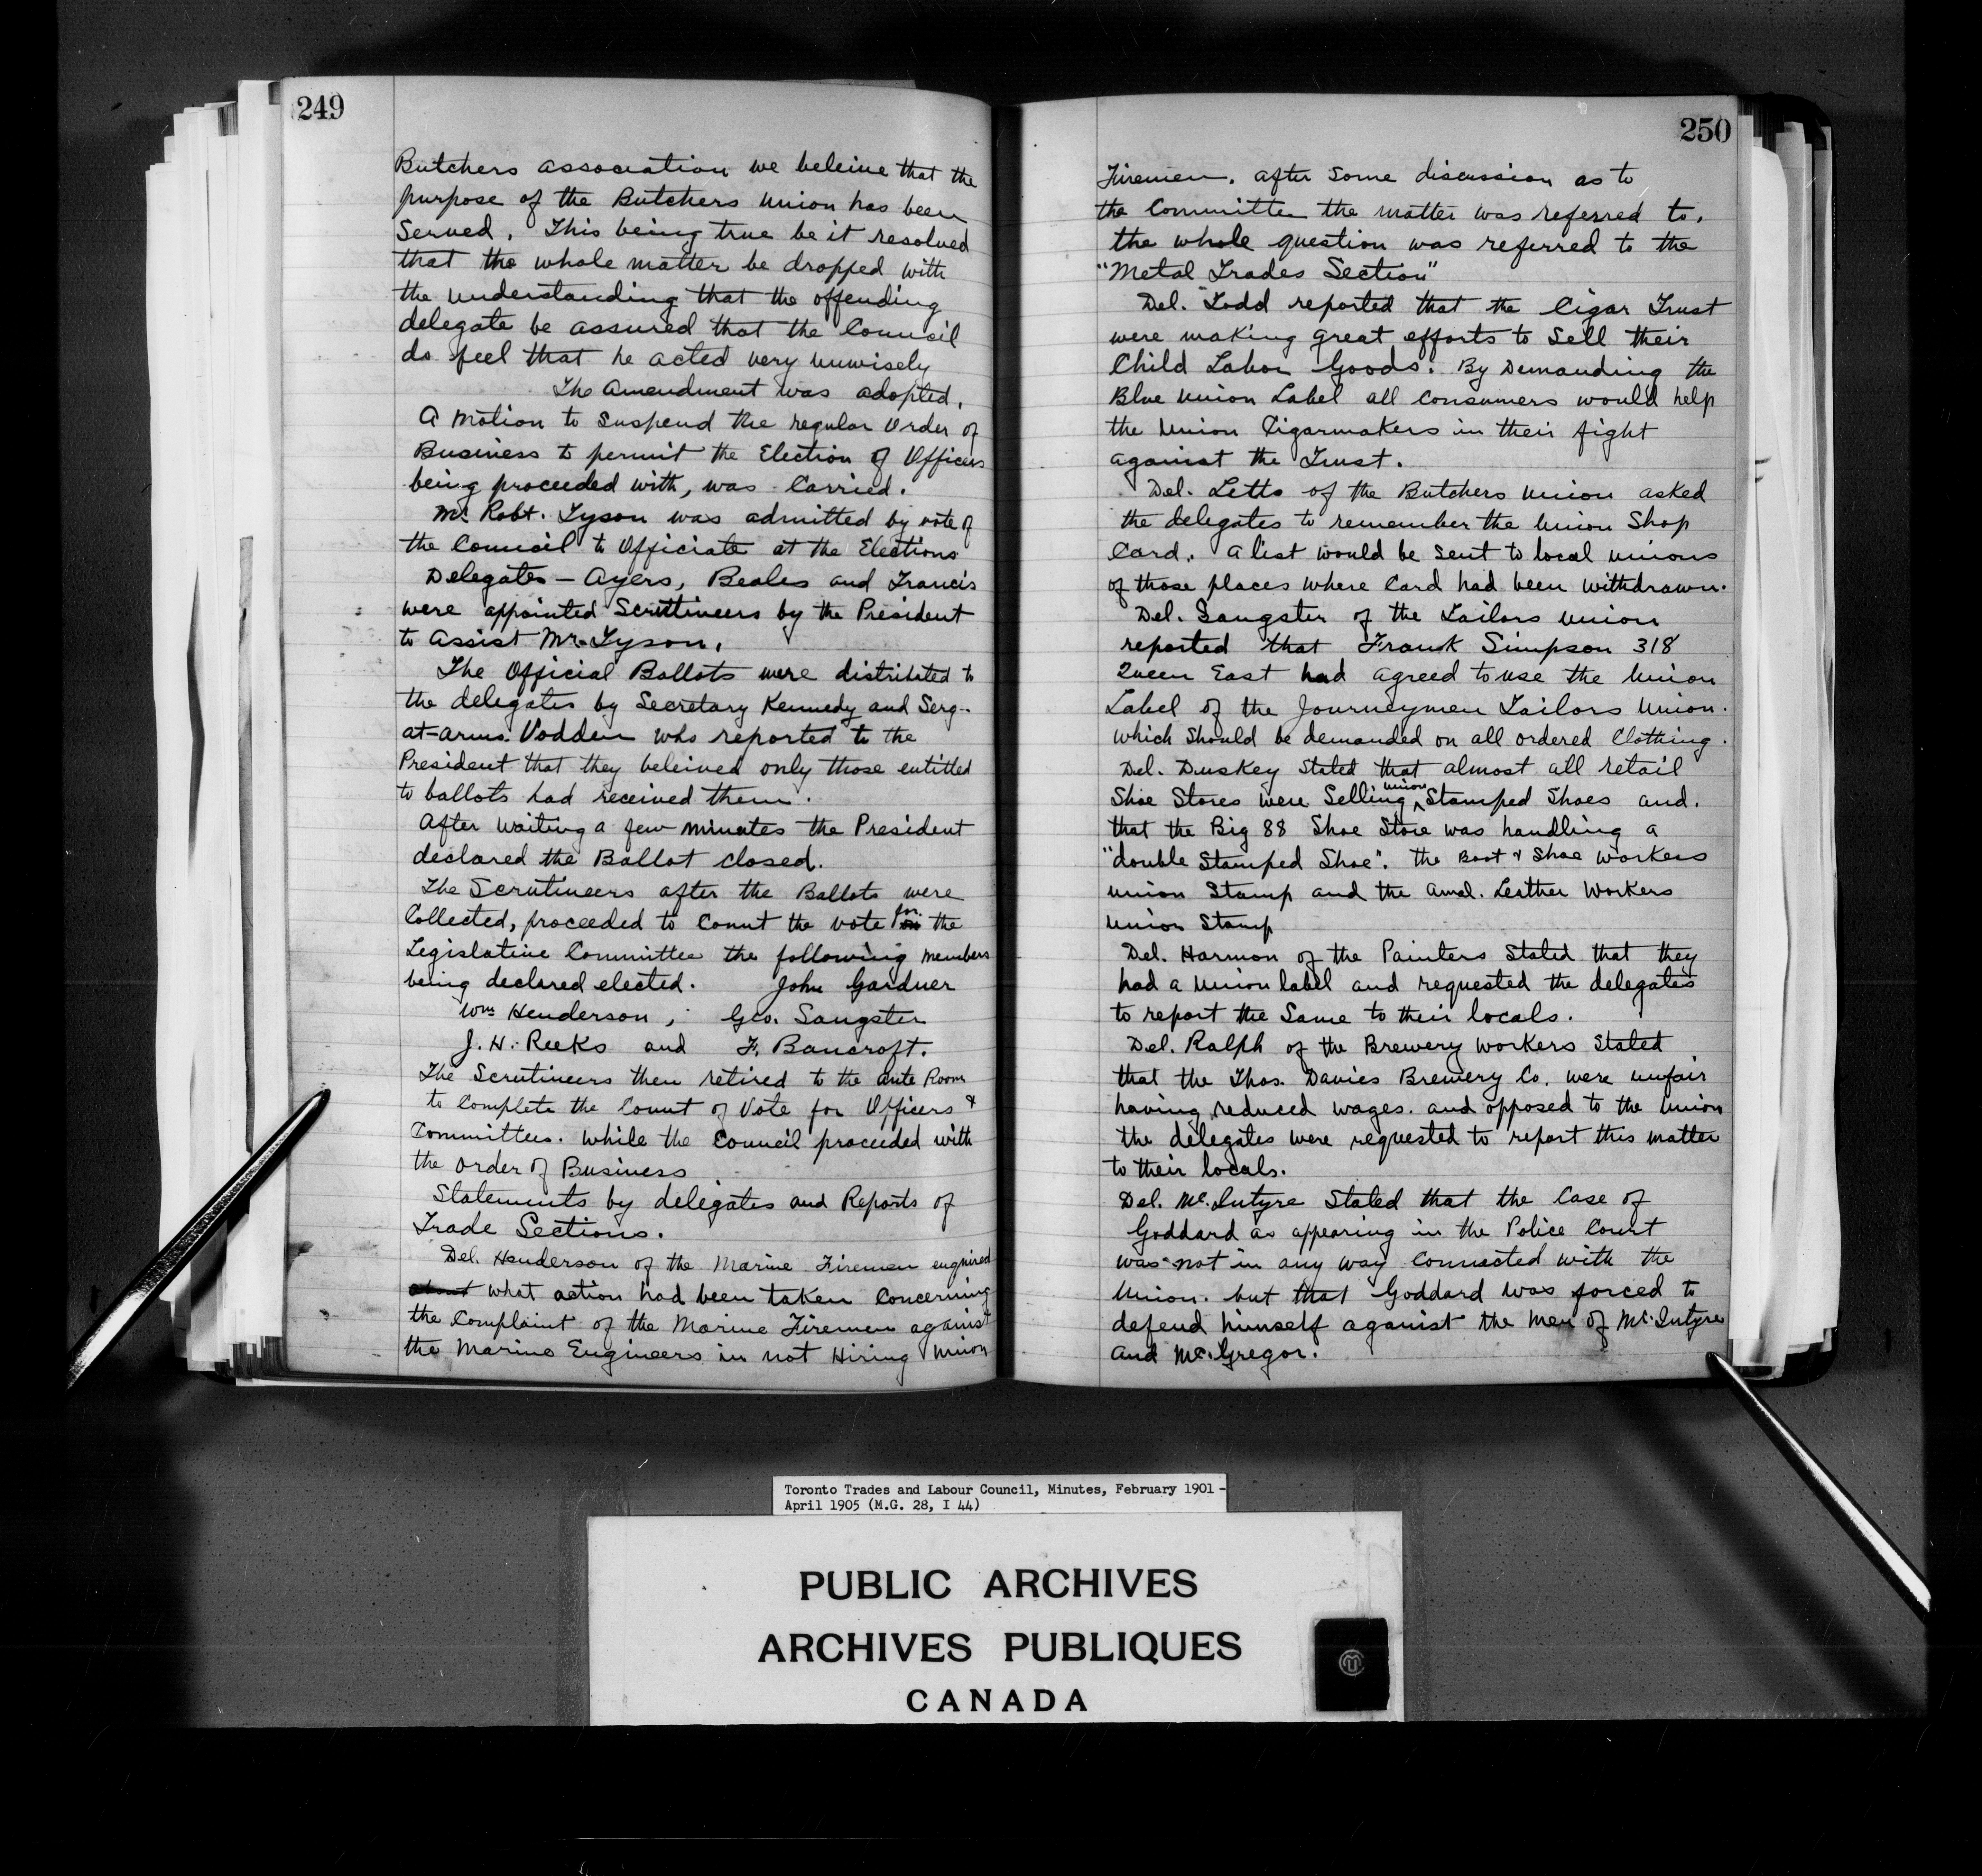 249
Butchers association we beleive that the
purpose of the Butchers Union has been
Served. This being true be it resolved
that the whole matter be dropped with
the understanding that the offending
delegate be assured that the Council
do feel that he acted very unwisely
The Amendment was adopted.
A Motion to Suspend the regular Order of
Business to permit the Election of Officers
being proceeded with, was Carried.
Mr. Robt. Tyson was admitted by vote of
the Council to Officiate at the Elections
Delegates – Ayers, Beales and Francis
were appointed Scruttineers by the President
to assist Mr. Tyson.
The Official Ballots were distributed to
the delegates by Secretary Kennedy and Serg-
at-arms Vodden who reported to the
President that they beleived only those entitled
to ballots had received them.
After waiting a few minutes the President
declared the Ballot Closed.
The Scrutineers after the Ballots were
Collected, proceeded to Count the vote for the
Legislative Committee the following members
being declared elected. John Gardner
Wm Henderson, Geo. Sangster
J. H. Reeks and F. Bancroft.
The Scrutineers then retired to the ante Room
to Complete the Count of Vote for Officers &
Committees. while the Council proceeded with
the Order of Business
Statements by delegates and Reports of
Trade Sections.
Del. Henderson of the Marine Firemen enquired
about what action had been taken Concerning
the Complaint of the Marine Firemen against
the Marine Engineers in not Hiring Union
250
Firemen. After Some discussion as to
the Committee the matter was referred to.
the whole question was referred to the
"Metal Trades Section"
Del. Todd reported that the Cigar Trust
were making great efforts to Sell their
Child Labor Goods. By Demanding the
Blue Union Label all Consumers would help
the Union Cigarmakers in their fight
against the Trust.
Del. Letts of the Butchers Union asked
the delegates to remember the Union Shop
Card. A list would be Sent to local unions
of those places where Card had been withdrawn.
Del. Sangster of the Tailors Union
reported that Frank Simpson 318
Queen East had agreed to use the Union
Label of the Journeymen Tailors Union.
which Should be demanded on all ordered Clothing.
Del. Duskey Stated that almost all retail
Shoe Stores were Selling union Stamped Shoes and.
that the Big 88 Shoe Store was handling a
"double Stamped Shoe". the Boot & Shoe Workers
Union Stamp and the Amal. Leather Workers
Union Stamp
Del. Harmon of the Painters Stated that they
had a Union label and requested the delegates
to report the Same to their locals.
Del. Ralph of the Brewery Workers Stated
that the Thos. Davies Brewery Co. were unfair
having reduced wages. and opposed to the Union
the delegates were requested to report this matter
to their locals.
Del. Mc.Intyre Stated that the Case of
Goddard as appearing in the Police Court
was not in any way Connected with the
Union. but that Goddard was forced to
defend himself against the Men of Mc.Intyre
and Mc.Gregor.
Toronto Trades and Labour Council, Minutes, February 1901 -
April 1905 (M.G. 28, I 44)
PUBLIC ARCHIVES
ARCHIVES PUBLIQUES
CANADA